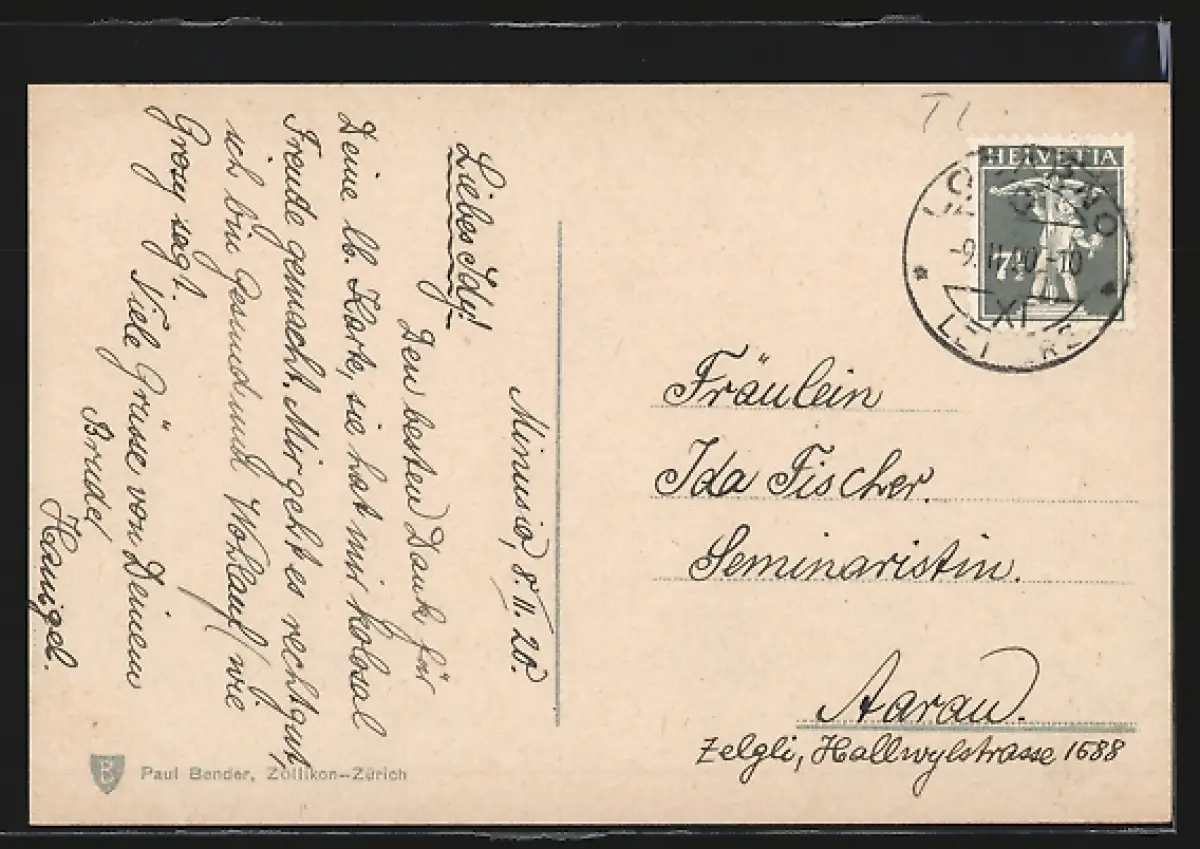 Minusio, 8. II. 20.
Liebes Idy!
Den besten Dank für
Deine lb. Karte, sie hat mir kolosal
Freude gemacht. Mir geht es recht gut,
ich bin Gesund und Wohlauf, wie
Grosy sagt. Viele Grüsse von Deinem
Brudel
Hansgel.
HELVETIA
7½
-9.II.20.-10
XI
Fräulein
Ida Fischer.
Seminaristin.
Aarau.
Zelgli, Hallwylstrasse 1688
B
Paul Bender, Zollikon-Zürich